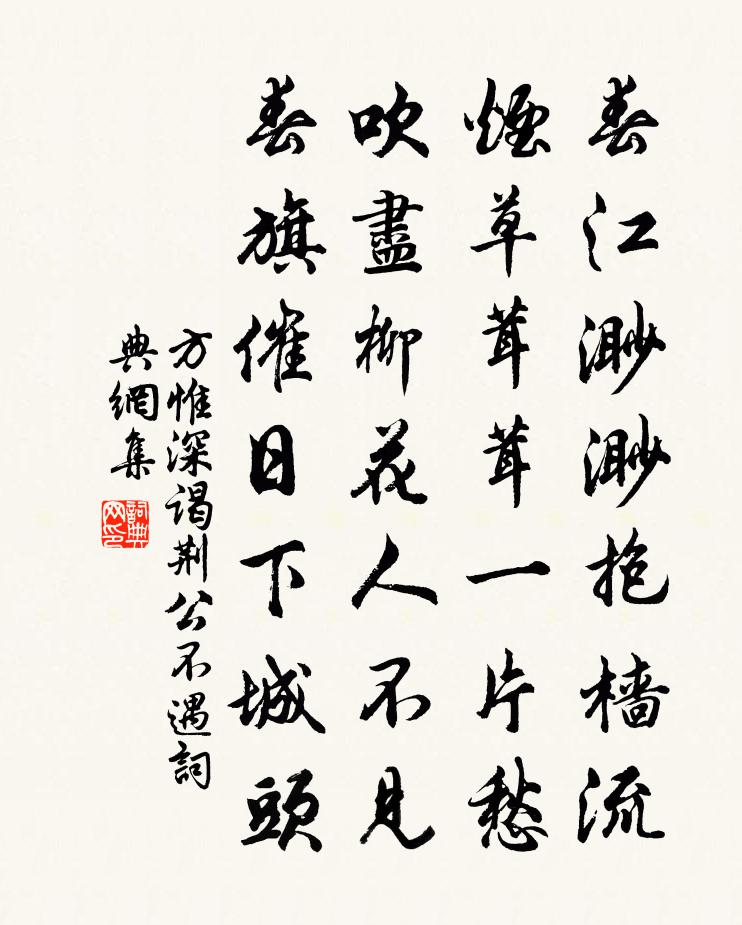 春江渺渺抱檣流
煙草茸茸一片愁
吹盡柳花人不見
春旗催日下城頭
方惟深謁荊公不遇詞
典網集
詞典
网印